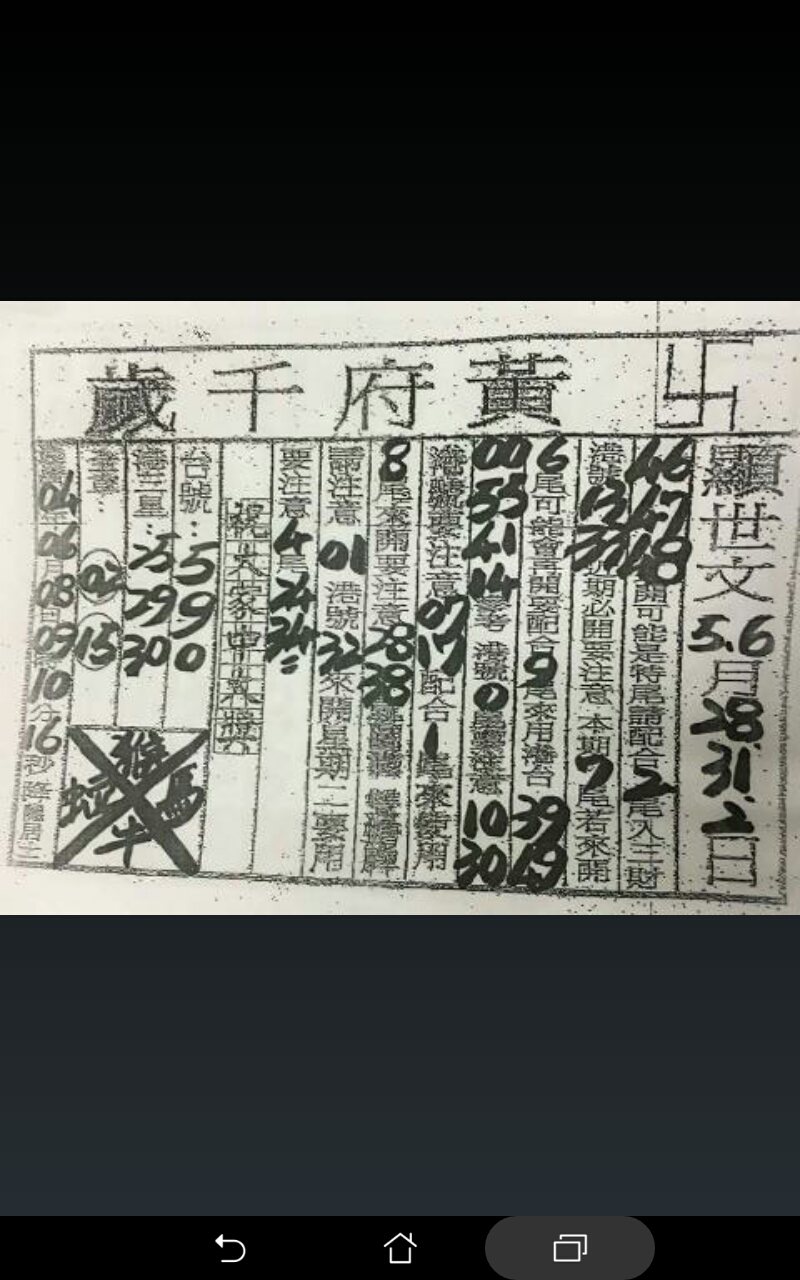 卍黃府千歲
顯世文5.6月28.31.2日
46 47 48開可能是特尾請配合2尾入三財
期必開要注意 本期7尾若來開
6尾可能會再開要配合9尾來用港台39 49
00 55 41 14參考 港號0尾要注意10 30
港號要注意07 17配合1尾來
8尾來開要注意28 38
請注意01港號32來開星期二要用
要注意4尾24 34=
祝大家中獎
台號：5 9 0
港三星：25 29 30
02 15
猴馬牛蛇
04年06月08日09時10分16秒降